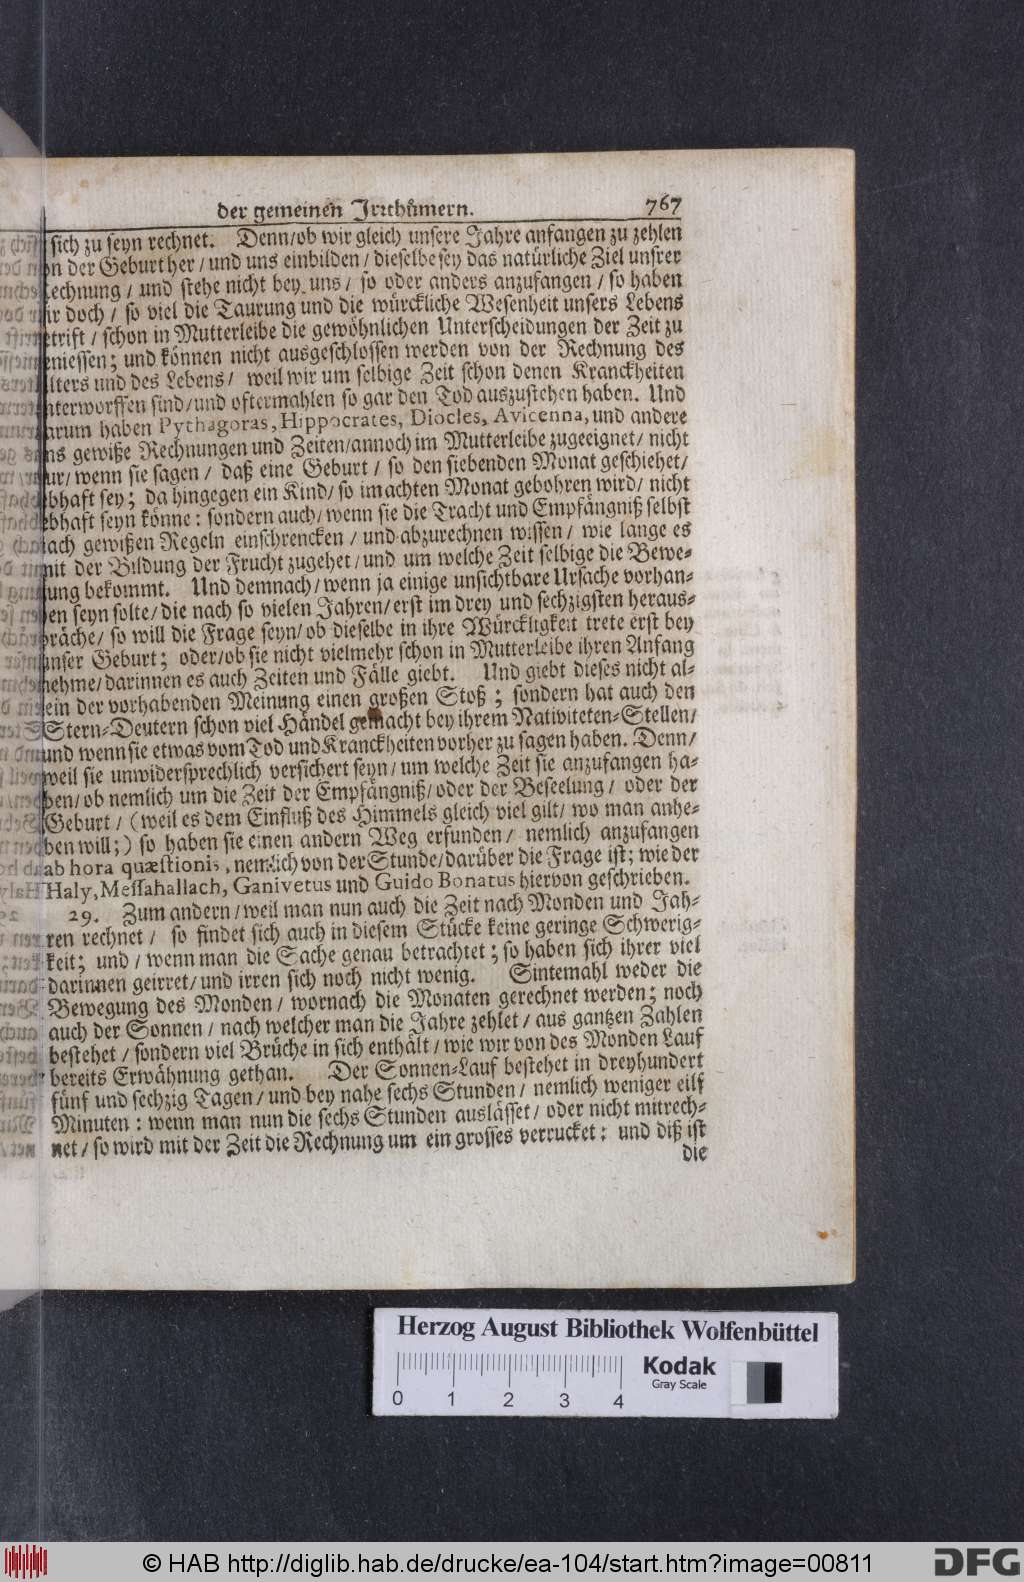 der gemeinen Irrthůmern. 767
sich zu seyn rechnet. Denn/ob wir gleich unsere Jahre anfangen zu zehlen
on der Geburt her/und uns einbilden/dieselbe sey das natürliche Ziel unsrer
Rechnung/und stehe nicht bey uns/so oder anders anzufangen/so haben
ir doch/so viel die Taurung und die würckliche Wesenheit unsers Lebens
etrift/schon in Mutterleibe die gewöhnlichen Unterscheidungen der Zeit zu
eniessen; und können nicht ausgeschlossen werden von der Rechnung des
lters und des Lebens/ weil wir um selbige Zeit schon denen Kranckheiten
nterworffen sind/und oftermahlen so gar den Tod auszustehen haben. Und
arum haben Pythagoras, Hippocrates, Diocles, Avicenna, und andere
ns gewiße Rechnungen und Zeiten/annoch im Mutterleibe zugeeignet/nicht
ur/wenn sie sagen/ daß eine Geburt/so den siebenden Monat geschiehet/
ebhaft sey; da hingegen ein Kind/so im achten Monat gebohren wird/nicht
ebhaft seyn könne: sondern auch/wenn sie die Tracht und Empfängniß selbst
nach gewißen Regeln einschrencken/und abzurechnen wissen/ wie lange es
mit der Bildung der Frucht zugehet/und um welche Zeit selbige die Bewe-
gung bekommt. Und demnach/wenn ja einige unsichtbare Ursache vorhan-
den seyn solte/die nach so vielen Jahren/erst im drey und sechzigsten heraus-
präche/so will die Frage seyn/ob dieselbe in ihre Würckligkeit trete erst bey
unser Geburt; oder/ob sie nicht vielmehr schon in Mutterleibe ihren Anfang
nehme/darinnen es auch Zeiten und Fälle giebt. Und giebt dieses nicht al-
lein der vorhabenden Meinung einen großen Stoß; sondern hat auch den
Stern-Deutern schon viel Händel gemacht bey ihrem Nativiteten-Stellen/
und wenn sie etwas vom Tod und Kranckheiten vorher zu sagen haben. Denn/
weil sie unwidersprechlich versichert seyn/um welche Zeit sie anzufangen ha-
ben/ob nemlich um die Zeit der Empfängniß/oder der Beseelung/ oder der
Geburt/(weil es dem Einfluß des Himmels gleich viel gilt/wo man anhe-
ben will;) so haben sie einen andern Weg erfunden/ nemlich anzufangen
ab hora quæstionis, nemlich von der Stunde/darüber die Frage ist; wie der
Haly, Messahallach, Ganivetus und Guido Bonatus hiervon geschrieben.
29. Zum andern/weil man nun auch die Zeit nach Monden und Jah-
ren rechnet/ so findet sich auch in diesem Stücke keine geringe Schwerig-
keit; und/wenn man die Sache genau betrachtet; so haben sich ihrer viel
darinnen geirret/und irren sich noch nicht wenig. Sintemahl weder die
Bewegung des Monden/wornach die Monaten gerechnet werden; noch
auch der Sonnen/nach welcher man die Jahre zehlet/aus gantzen Zahlen
bestehet/sondern viel Brüche in sich enthält/wie wir von des Monden Lauf
bereits Erwähnung gethan. Der Sonnen-Lauf bestehet in dreyhundert
fünf und sechzig Tagen/und bey nahe sechs Stunden/nemlich weniger eilf
Minuten: wenn man nun die sechs Stunden auslässet/oder nicht mitrech-
net/so wird mit der Zeit die Rechnung um ein grosses verrucket: und diß ist
die
Herzog August Bibliothek Wolfenbüttel
Kodak
Gray Scale
0 1 2 3 4
© HAB http://diglib.hab.de/drucke/ea-104/start.htm?image=00811
DFG